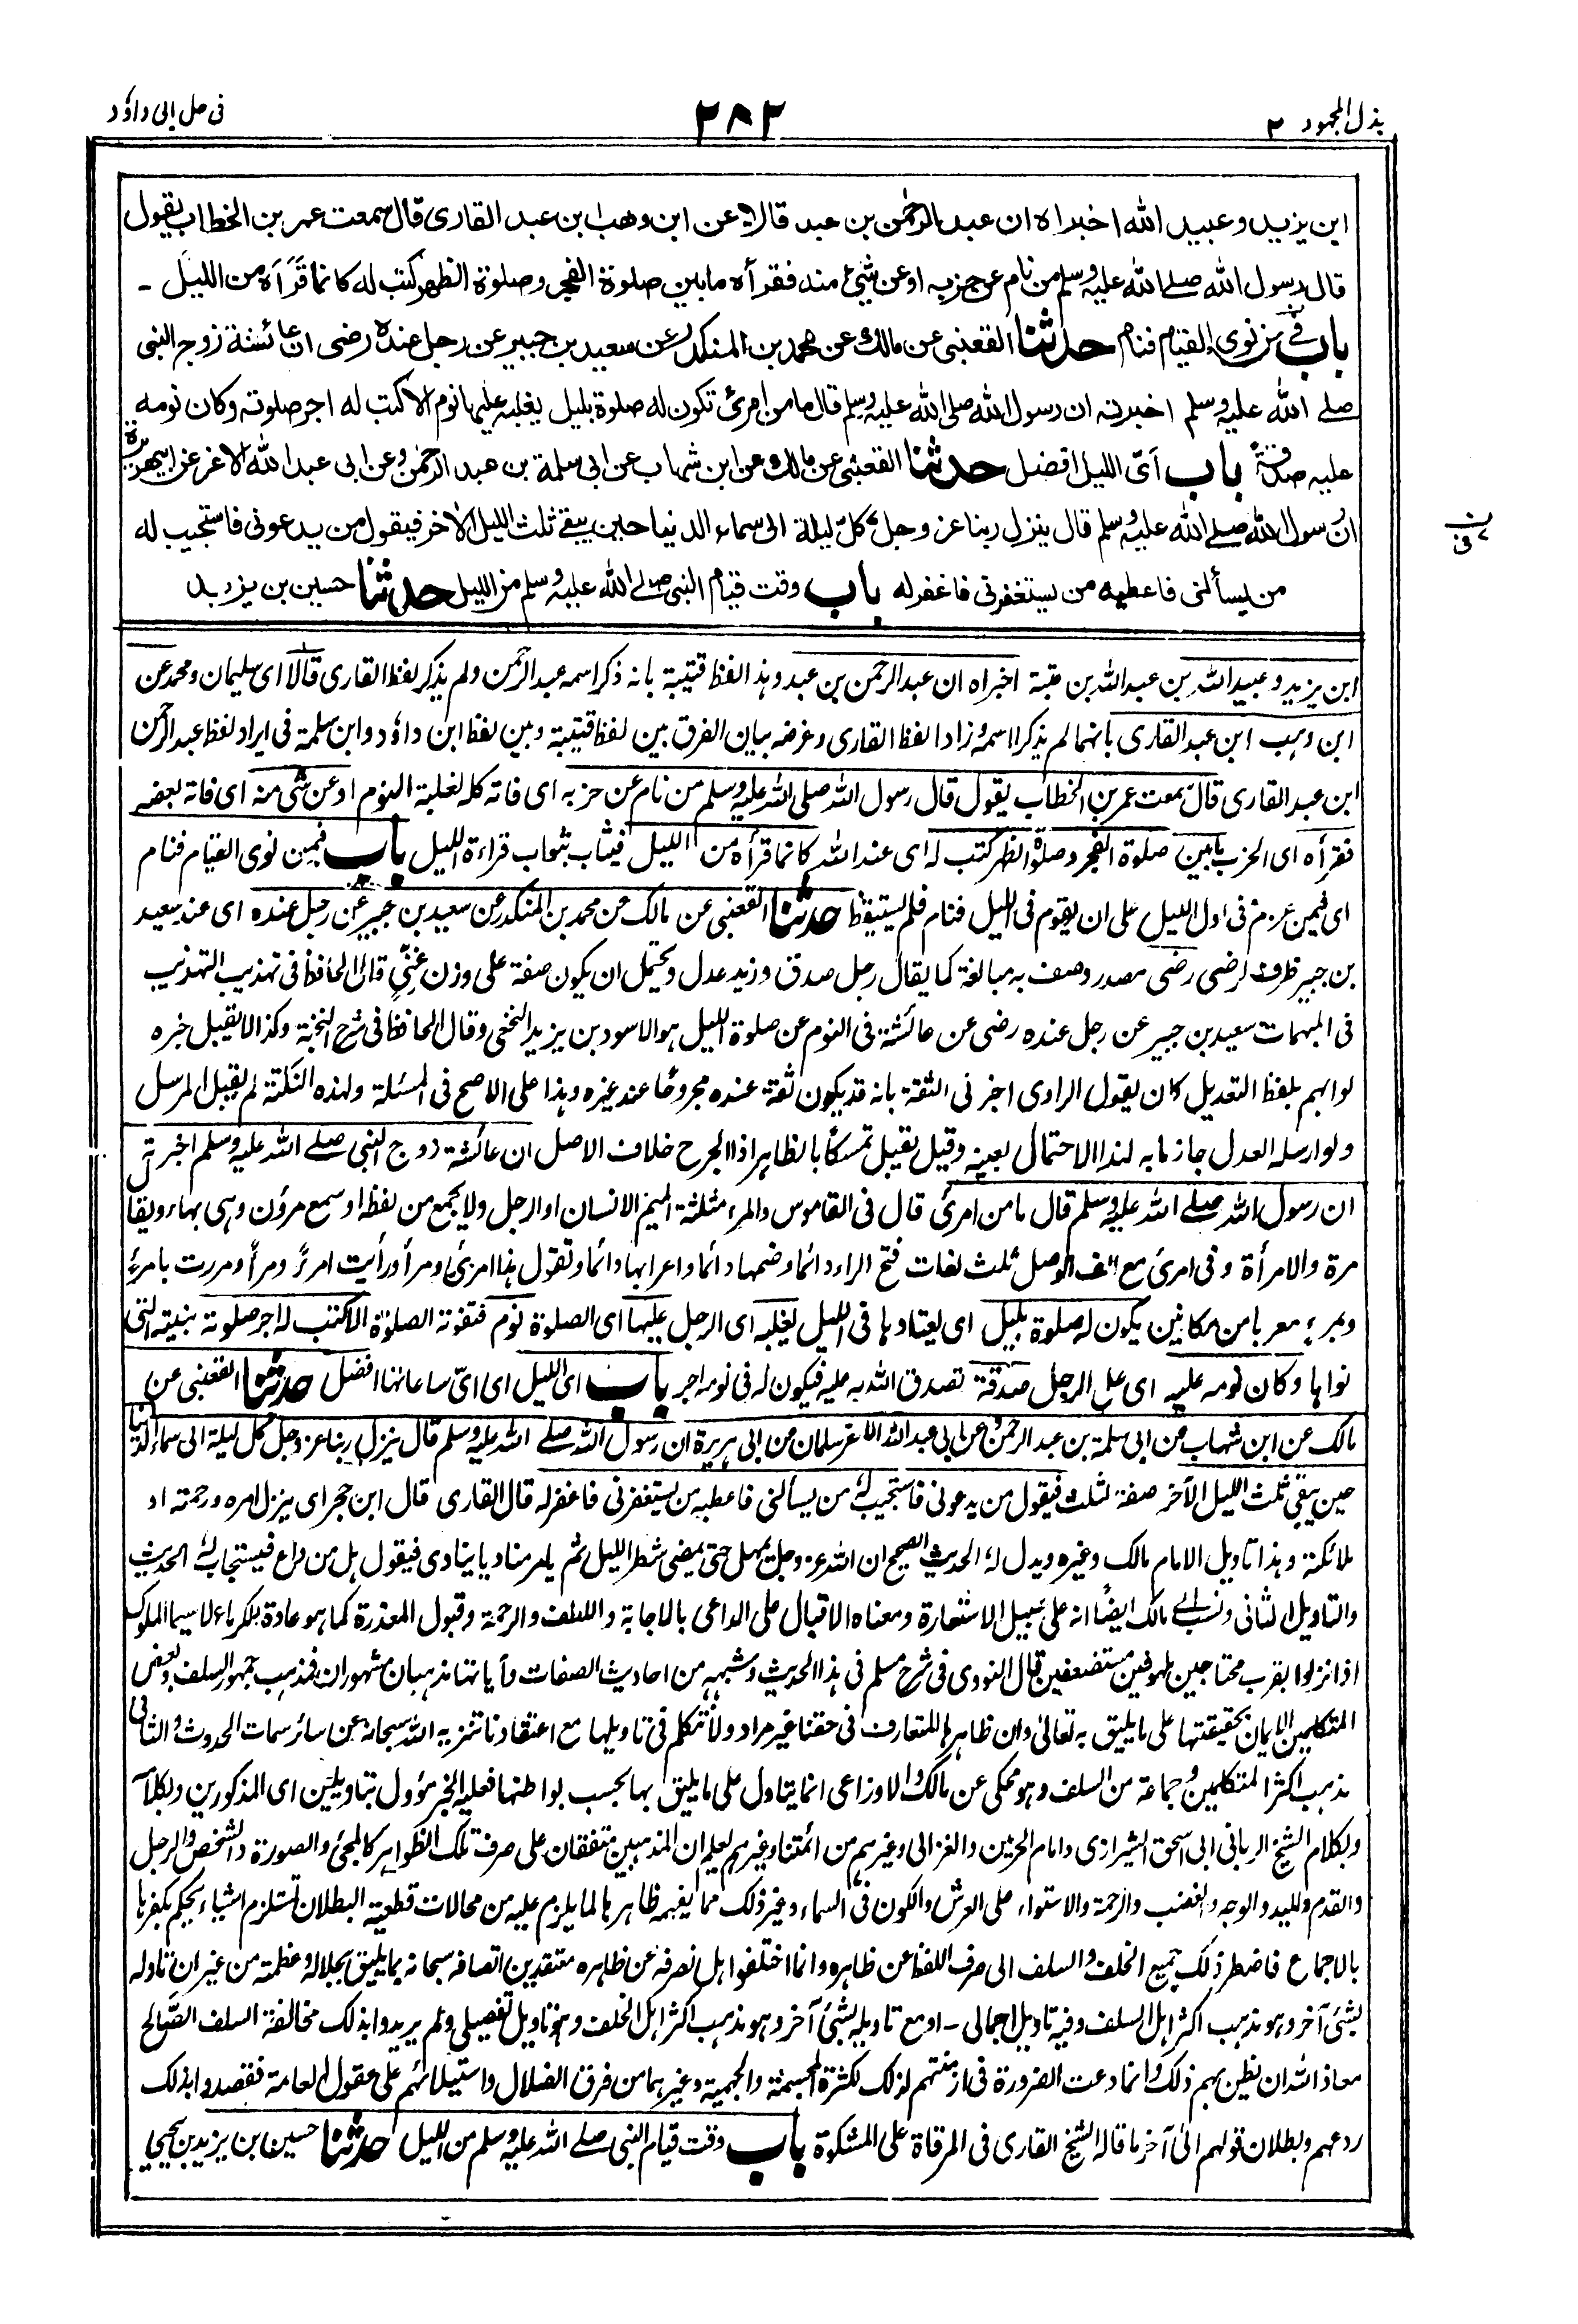 بذل المجهود ٢
٢٨٢
فى حل ابى داؤد
ابن يزيد وعبيد الله اخبراه ان عبد الرحمٰن بن عبد قالا عن ابن وهب ابن عبد القارى قال سمعت عمر بن الخطاب يقول
قال رسول الله صلے الله عليه وسلم من نام عن حزبه او عن شئ منه فقرأه ما بين صلوة الفجر وصلوة الظهر كتب له كانما قرأه من الليل -
باب فى من نوى القيام فنام حدثنا القعنبى عن مالك عن محمد بن المنكدر عن سعيد بن جبير عن رجل عنده رضى ان عائشة زوج النبى
صلے الله عليه وسلم اخبرته ان رسول الله صلى الله عليه وسلم قال ما من امرئ تكون له صلوة بليل يغلبه عليها نوم الا كتب له اجر صلوته وكان نومه
عليه صدقة باب اىّ الليل افضل حدثنا القعنبى عن مالك عن ابن شهاب عن ابى سلمة بن عبد الرحمٰن وعن ابى عبد الله الاغر عن ابى هريرة
ان رسول الله صلے الله عليه وسلم قال ينزل ربنا عز وجل كل ليلة الى سماء الدنيا حين يبقے ثلث الليل الاخر فيقول من يدعونى فاستجيب له
من يسألنى فاعطيه من يستغفرنى فاغفر له باب وقت قيام النبى صلے الله عليه وسلم من الليل حدثنا حسين بن يزيد
ابن يزيد وعبيد الله بن عبد الله بن عتبة اخبراه ان عبد الرحمن بن عبد وهذا لفظ قتيبة بانه ذكر اسمه عبد الرحمن ولم يذكر لفظ القارى قالا اى سليمان ومحمد عن
ابن وهب ابن عبد القارى بانهما لم يذكرا اسمه وزادا لفظ القارى وغرضه بيان الفرق بين لفظ قتيبة وبين لفظ ابن داؤد وابن سلمة فى ايراد لفظ عبد الرحمن
ابن عبد القارى قال سمعت عمر بن الخطاب يقول قال رسول الله صلى الله عليه وسلم من نام عن حزبه اى فاته كله لغلبة النوم او عن شئ منه اى فاته بعضه
فقرأه اى الحزب ما بين صلوة الفجر وصلوة الظهر كتب له اى عند الله كانما قرأه من الليل فيثاب بثواب قراءة الليل باب فيمن نوى القيام فنام
اى فيمن عزم فى اول الليل على ان يقوم فى الليل فنام فلم يستيقظ حدثنا القعنبى عن مالك عن محمد بن المنكدر عن سعيد بن جبير عن رجل عنده اى عند سعيد
بن جبير ظرف لرضى رضى مصدر وصف به مبالغة كما يقال رجل صدق وزيد عدل ويحتمل ان يكون صفة على وزن غنىّ قال الحافظ فى تهذيب التهذيب
فى المبهمات سعيد بن جبير عن رجل عنده رضى عن عائشة فى النوم عن صلوة الليل هو الاسود بن يزيد النخعى وقال الحافظ فى شرح النخبة وكذا لا يقبل خبره
لو ابهم بلفظ التعديل كان يقول الراوى اخبرنى الثقة بانه قد يكون ثقة عنده مجروحا عند غيره وهذا على الاصح فى المسئلة ولهذه النكتة لم يقبل المرسل
ولو ارسله العدل جازما به لهذا الاحتمال بعينه وقيل يقبل تمسكا بالظاهر اذ الجرح خلاف الاصل ان عائشة زوج النبى صلے الله عليه وسلم اخبرته
ان رسول الله صلے الله عليه وسلم قال ما من امرئ قال فى القاموس والمرء مثلثة الميم الانسان او الرجل ولا يجمع من لفظه او سمع مرؤن وهى بهاء ويقال
مرة والامرأة وفى امرئ مع الف الوصل ثلث لغات فتح الراء دائما وضمها دائما واعرابها دائما وتقول هذا امرئ ومرأ ورأيت امرئ ومرأ ومررت بامرئ
وبمرء معربا من مكانين يكون له صلوة بليل اى يعتادها فى الليل يغلبه اى الرجل عليها اى الصلوة نوم فتفوته الصلوة الا كتب له اجر صلوته بنيته التى
نواها وكان نومه عليه اى على الرجل صدقة تصدق الله به عليه فيكون له فى نومه اجر باب اى الليل اى اىّ ساعاتها افضل حدثنا القعنبى عن
مالك عن ابن شهاب عن ابى سلمة بن عبد الرحمن وعن ابى عبد الله الاغر سلمان عن ابى هريرة ان رسول الله صلے الله عليه وسلم قال ينزل ربنا عز وجل كل ليلة الى سماء الدنيا
حين يبقى ثلث الليل الآخر صفة لثلث فيقول من يدعونى فاستجيب له من يسألنى فاعطيه من يستغفرنى فاغفر له قال القارى قال ابن حجر اى ينزل امره ورحمته او
ملائكته وهذا تاويل الامام مالك وغيره ويدل له الحديث الصحيح ان الله عز وجل يمهل حتى يمضى شطر الليل ثم يامر مناديا ينادى فيقول هل من داع فيستجاب له الحديث
والتاويل الثانى ونسب الى مالك ايضا انه على سبيل الاستعارة ومعناه الاقبال على الداعى بالاجابة واللطف والرحمة وقبول المعذرة كما هو عادة الكرماء لا سيما الملوك
اذا نزلوا بقرب محتاجين ملهوفين مستضعفين قال النووى فى شرح مسلم فى هذا الحديث وشبهه من احاديث الصفات وآياتها مذهبان مشهوران فمذهب جمهور السلف وبعض
المتكلمين الايمان بحقيقتها على ما يليق به تعالى وان ظاهرها المتعارف فى حقنا غير مراد ولا نتكلم فى تاويلها مع اعتقادنا تنزيه الله سبحانه عن سائر سمات الحدوث والثانى
مذهب اكثر المتكلمين وجماعة من السلف وهو محكى عن مالك والاوزاعى انما يتاول على ما يليق بها بحسب بواطنها فعليه الخبر مؤول بتاويلين اى المذكورين وبكلامه
وبكلام الشيخ الربانى ابى اسحق الشيرازى وامام الحرمين والغزالى وغيرهم من ائمتنا وغيرهم يعلم ان المذهبين متفقان على صرف تلك الظواهر كالمجئ والصورة والشخص والرجل
والقدم واليد والوجه والغضب والرحمة والاستواء على العرش والكون فى السماء وغير ذلك مما يفهمه ظاهرها لما يلزم عليه من محالات قطعية البطلان تستلزم اشياء يحكم بكفرها
بالاجماع فاضطر ذلك جميع الخلف والسلف الى صرف اللفظ عن ظاهره وانما اختلفوا هل نصرفه عن ظاهره معتقدين اتصافه سبحانه بما يليق بجلاله وعظمته من غير ان نأوله
بشئ آخر وهو مذهب اكثر اهل السلف وفيه تاويل اجمالى - او مع تاويله بشئ آخر وهو مذهب اكثر اهل الخلف وهو تاويل تفصيلى ولم يريدوا بذلك مخالفة السلف الصالح
معاذ الله ان يظن بهم ذلك وانما دعت الضرورة فى ازمنتهم لذلك لكثرة المجسمة والجهمية وغيرهما من فرق الضلال واستيلائهم على عقول العامة فقصدوا بذلك
ردعهم وبطلان قولهم الى آخر ما قاله الشيخ القارى فى المرقاة على المشكوة باب وقت قيام النبى صلے الله عليه وسلم من الليل حدثنا حسين ابن يزيد بن يحيى